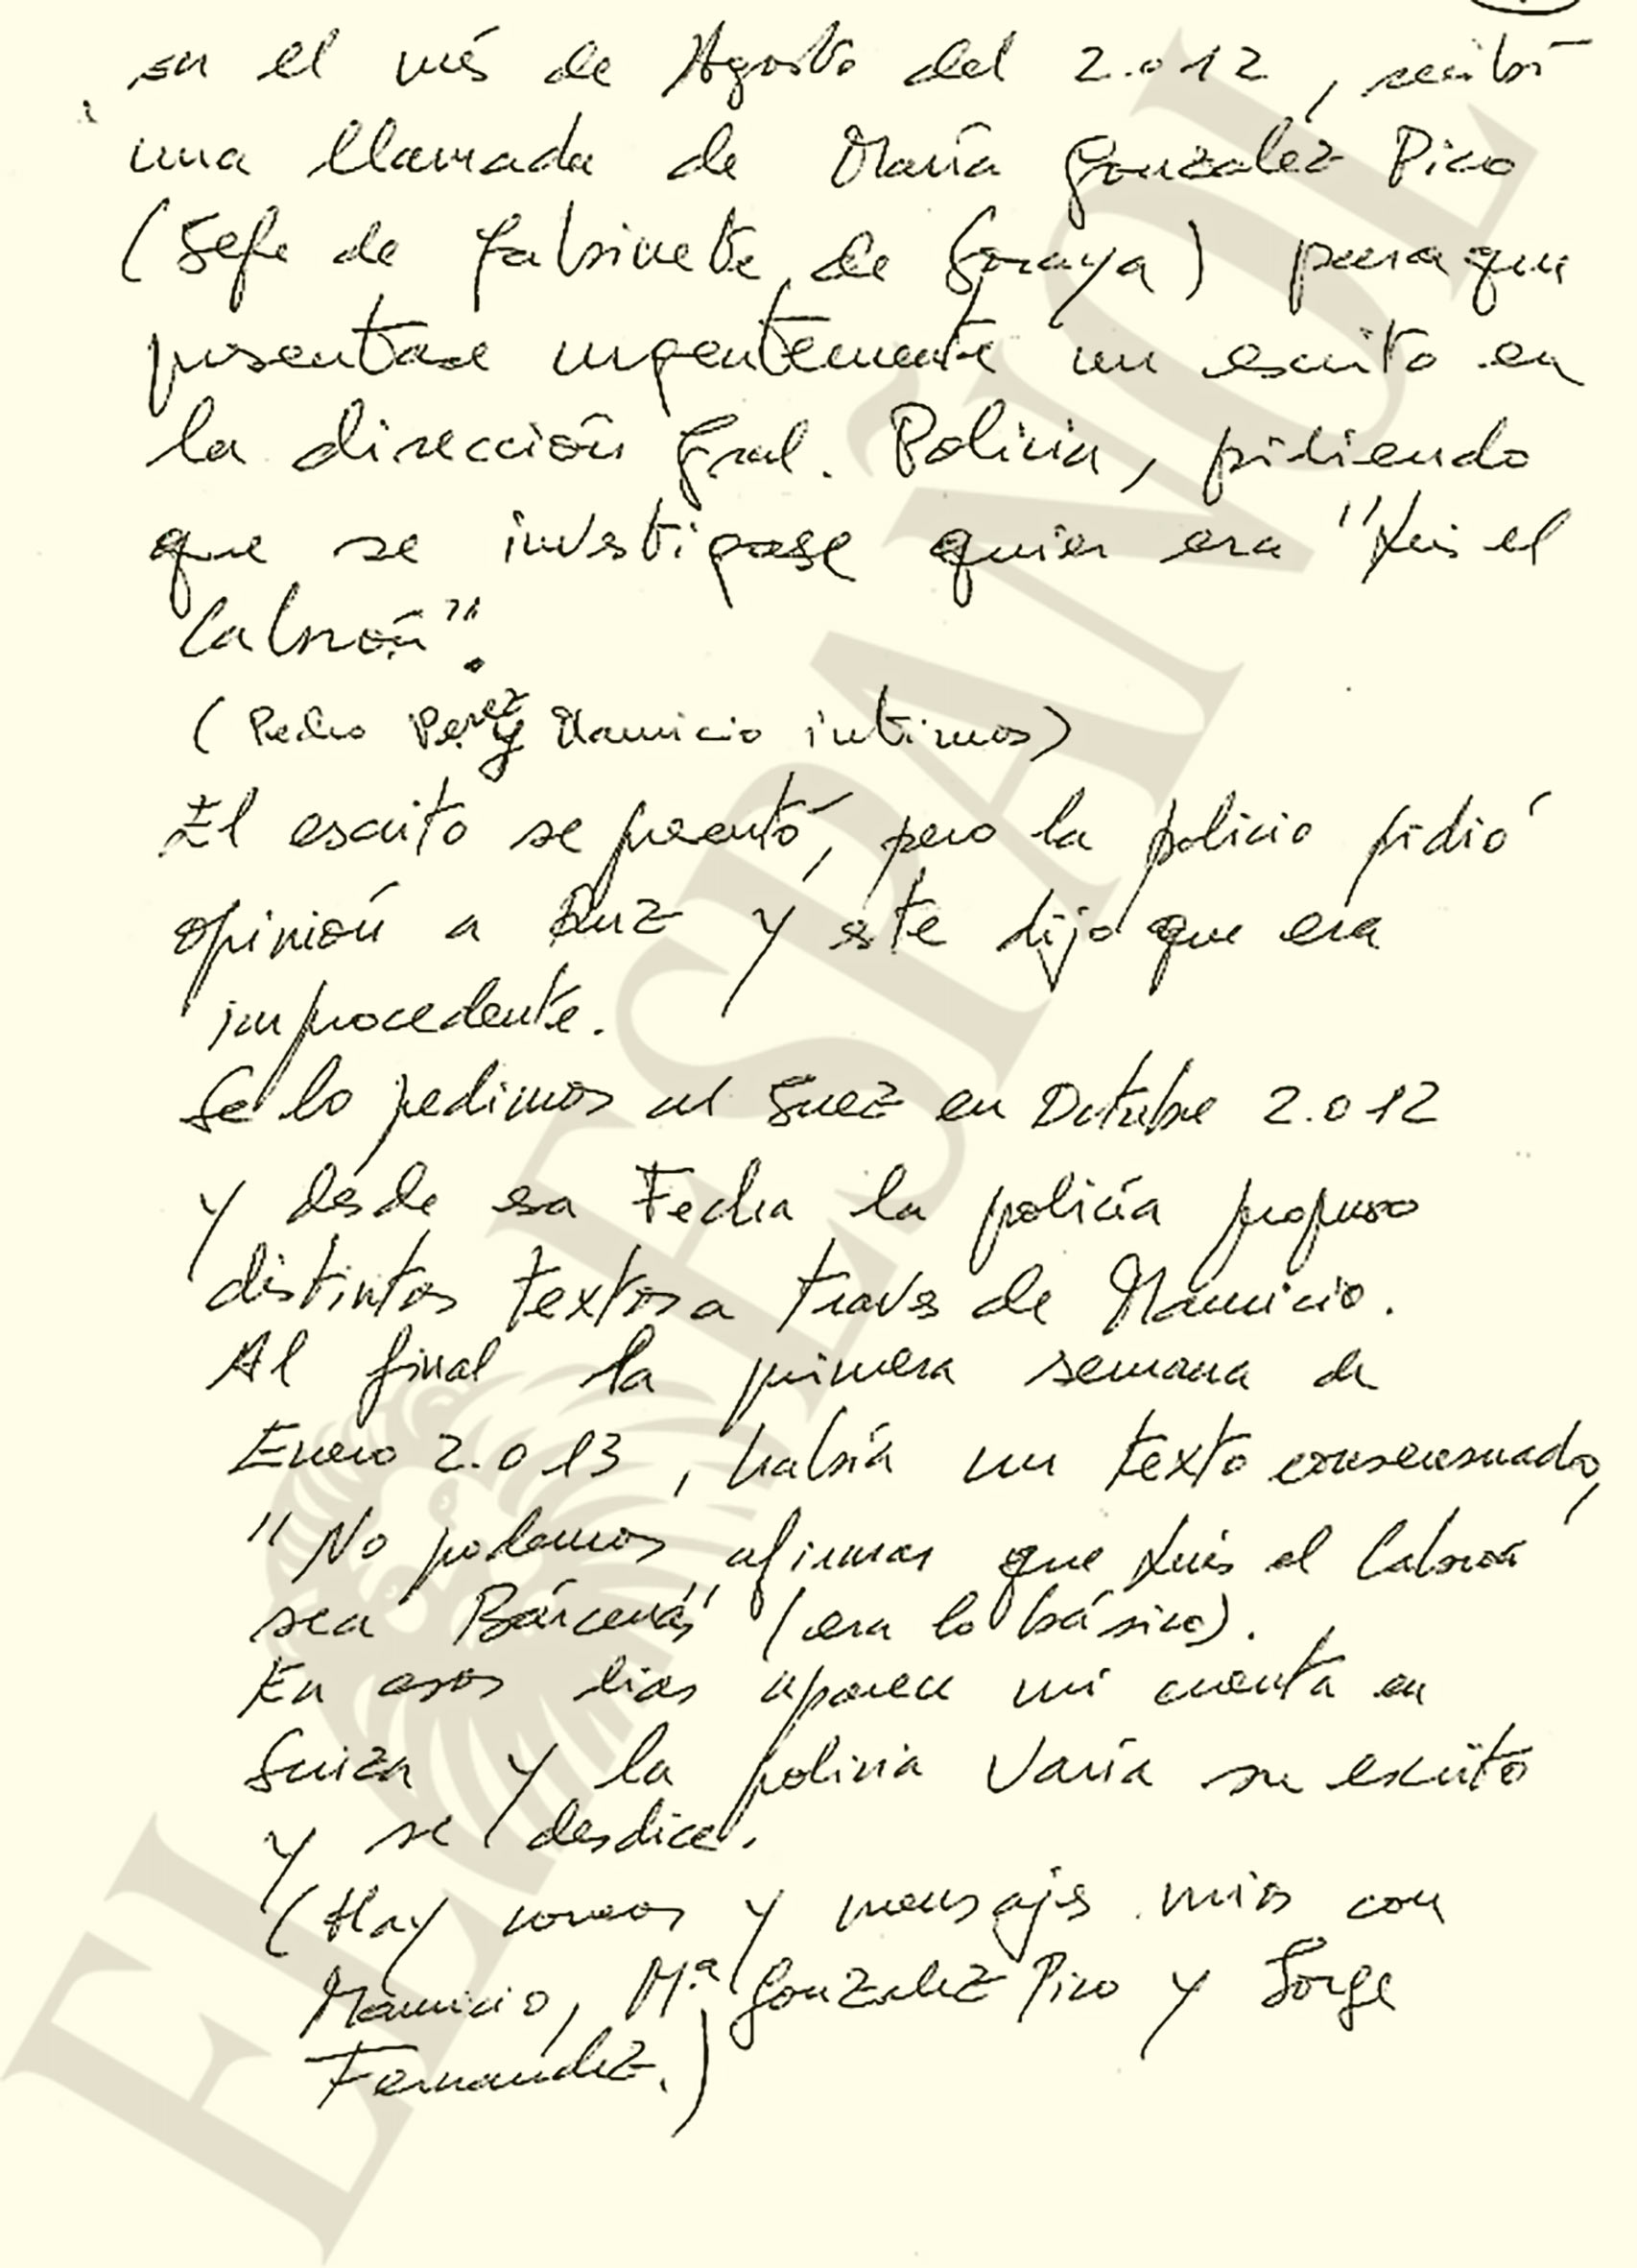 En el més de Agosto del 2.012, recibí
una llamada de María González Pico
(Jefe de Gabinete de Soraya) para que
presentase urgentemente un escrito en
la dirección Gral. Policia, pidiendo
que se investigase quien era "Luis el
Cabrón".
(Pedro Perez y Mauricio intimos)
El escrito se presentó, pero la policia pidió
opinión a Ruz y éste dijo que era
improcedente.
Se lo pedimos al Juez en Octubre 2.012
y desde esa Fecha la policía propuso
distintos textos a través de Mauricio.
Al final la primera semana de
Enero 2.013, había un texto consensuado,
"No podemos afirmar que Luis el Cabrón
sea Bárcenas" (era lo básico).
En esos dias aparece mi cuenta en
Suiza y la policia varía su escrito
y se desdice.
(Hay correos y mensajes mios con
Mauricio, Mª González Pico y Jorge
Fernandez.)
EL ESPAÑOL